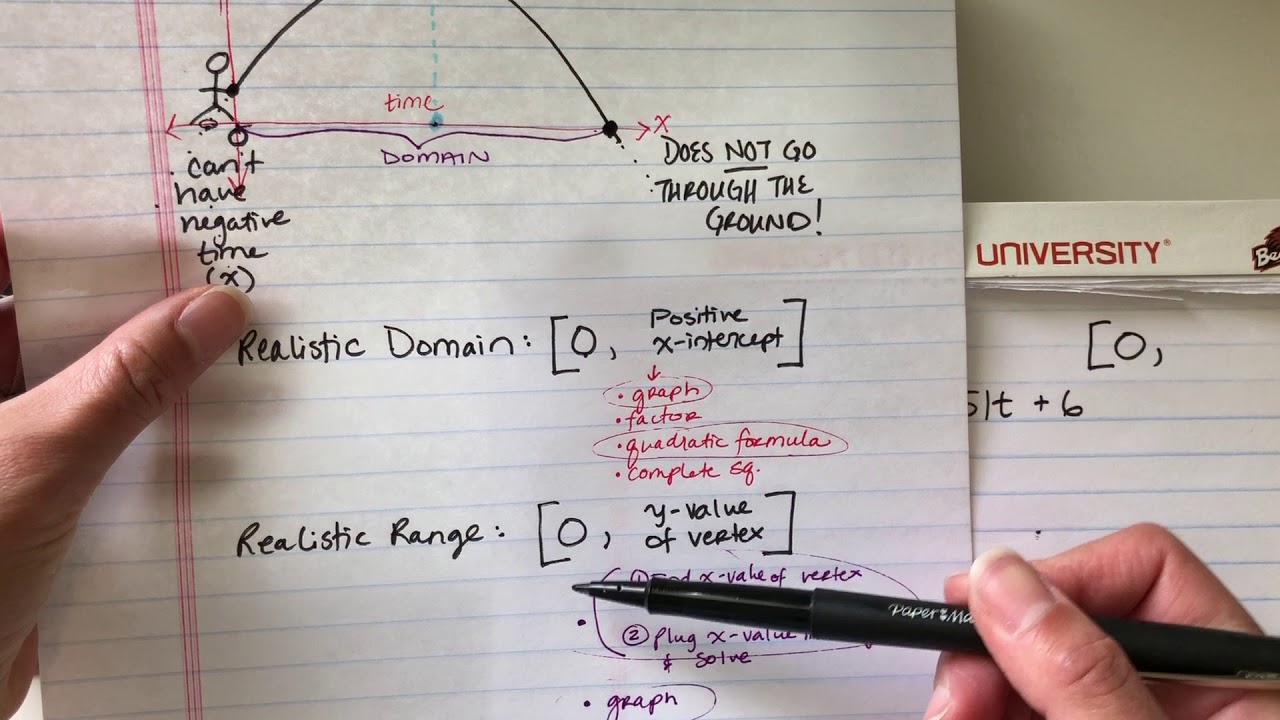 time
x
DOMAIN
0
can't
have
negative
time
(x)
DOES NOT GO
THROUGH THE
GROUND!
UNIVERSITY®
Be
Realistic Domain: [0, Positive
x-intercept]
• graph
• factor
• quadratic formula
• complete sq.
[0,
5|t + 6
Realistic Range: [0, y-value
of vertex]
① x-value of vertex
② plug x-value
& solve
• graph
PAPER MA